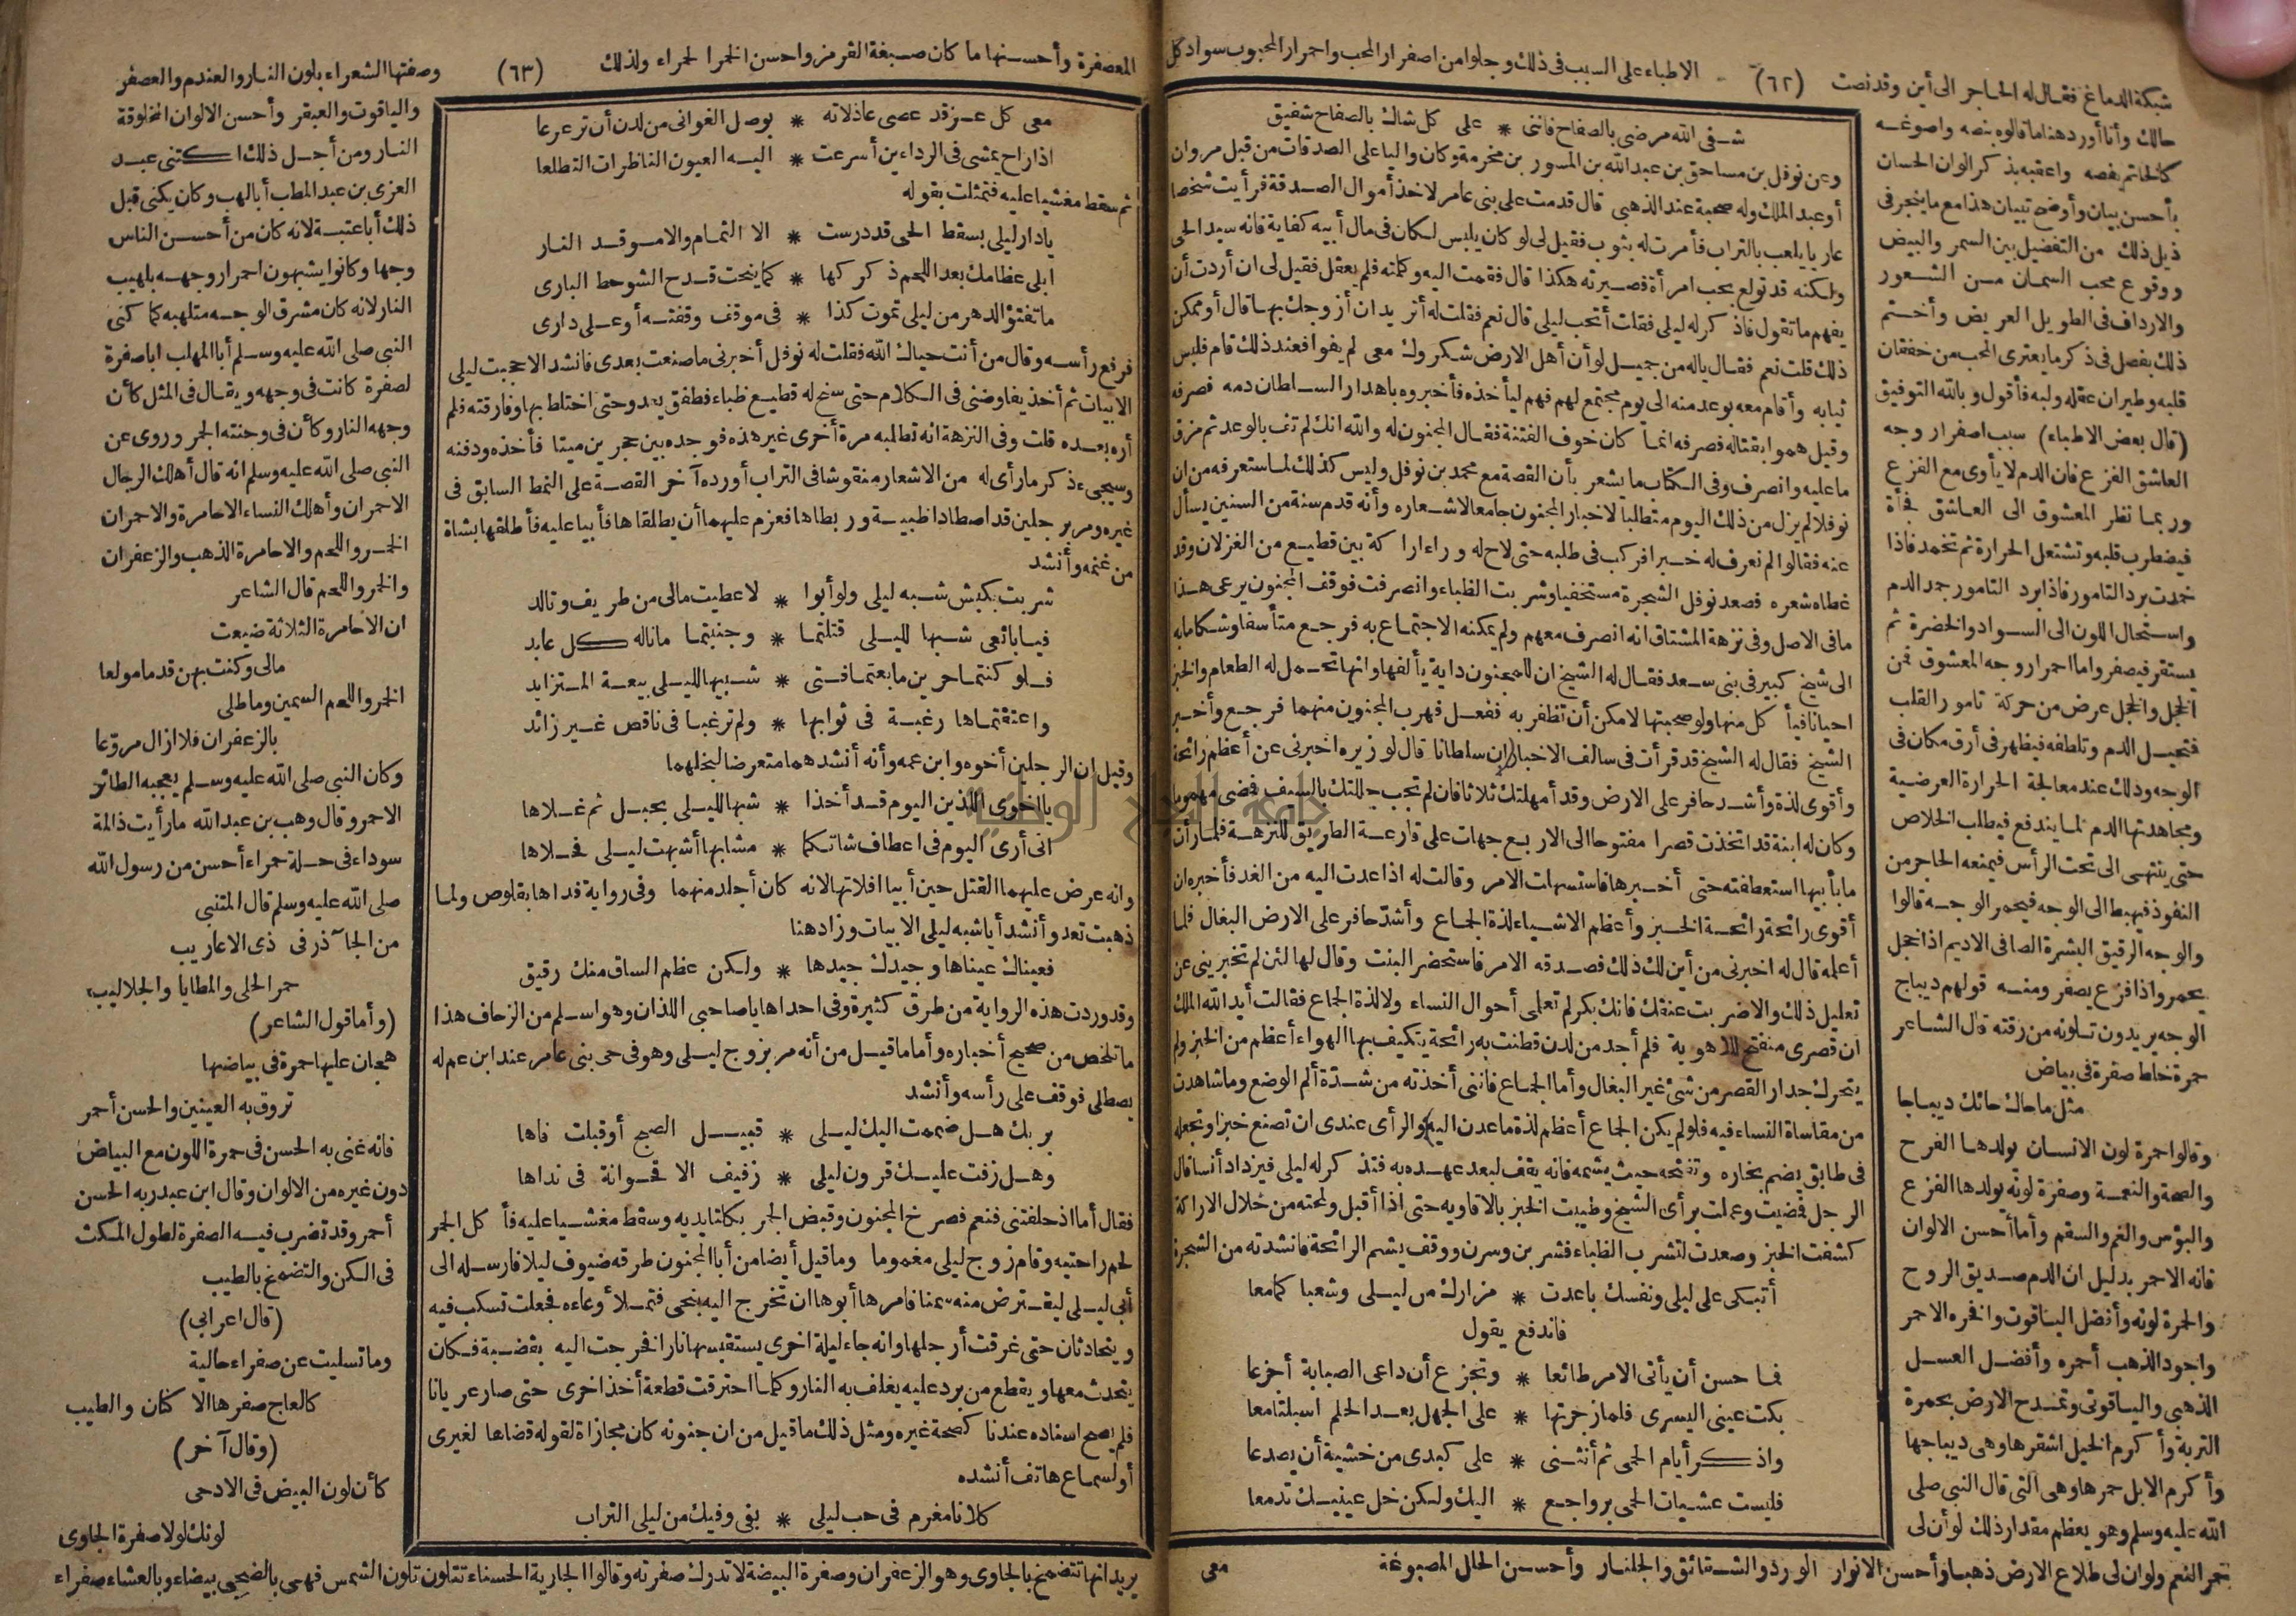 الاطباء على السبب فى ذلك وجلوا من اصفرار المحب واحمرار المحبوب سواد كل
(٦٢)
شبكة الدماغ فقال له الحاجر الى أين وقد نصت
حالك وأنا أورد هنا ما قالوه بنصه واصوغه
كالخاتم بفصه واعقبه بذكر الوان الحسان
بأحسن بيان وأوضح تبيان هذا مع ما ينجر فى
ذيل ذلك من التفضيل بين السمر والبيض
ووقوع محب السمان من الشعور
والارداف فى الطويل العريض وأختم
ذلك بفصل فى ذكر ما يعترى المحب من خفقان
قلبه وطيران عقله ولبه فأقول وبالله التوفيق
(قال بعض الاطباء) سبب اصفرار وجه
العاشق الفزع فان الدم لا يأوى مع الفزع
وربما نظر المعشوق الى العاشق فجأة
فيضطرب قلبه وتشتعل الحرارة ثم تخمد فاذا
خمدت برد التامور فاذا برد التامور جمد الدم
واستحال اللون الى السواد والخضرة ثم
يستقر فيصفر واما احمرار وجه المعشوق فمن
الخجل والخجل عرض من حركة تامور القلب
فتحيل الدم وتلطفه فيظهر فى أرق مكان فى
الوجه وذلك عند معالجة الحرارة العرضية
ومجاهدتها الدم لما يندفع فيطلب الخلاص
حتى ينتهى الى تحت الرأس فيمنعه الحاجر من
النفوذ فيهبط الى الوجه فيحمر الوجه قالوا
والوجه الرقيق البشرة الصافى الاديم اذا خجل
يحمر واذا فزع يصفر ومنه قولهم ديباج
الوجه يريدون تلونه من رقته قال الشاعر
حمرة خلط صفرة فى بياض
مثل ما حاك حائك ديباجا
وقالوا حمرة لون الانسان يولدها الفرح
والصحة والنعمة وصفرة لونه يولدها الفزع
والبؤس والغم والسقم وأما أحسن الالوان
فانه الاحمر بدليل ان الدم صديق الروح
والحمرة لونه وأفضل الياقوت وافخره الاحمر
واجود الذهب أحمره وأفضل العسل
الذهبى والياقوتى وتمتدح الارض بحمرة
التربة وأكرم الخيل اشقرها وهى ديباجها
وأكرم الابل حمرها وهى التى قال النبى صلى
الله عليه وسلم وهو يعظم مقدار ذلك لو أن لى
حمر النعم ولوان لى طلاع الارض ذهبا وأحسن الانوار الورد والشقائق والجلنار وأحسن الحلل المصبوغة
شفى الله مرضى بالصفاح فاننى * على كل شاك بالصفاح شفيق
وعن نوفل بن مساحق بن عبد الله بن المسور بن مخرمة وكان واليا على الصدقات من قبل مروان
أو عبد الملك وله صحبة عند الذهبى قال قدمت على بنى عامر لاخذ أموال الصدقة فرأيت شخصا
عاريا يلعب بالتراب فأمرت له بثوب فقيل لى لو كان يلبس لكان فى مال أبيه كفاية فانه سيد الحى
ولكنه قد تولع بحب امرأة فصيرته هكذا قال فقمت اليه وكلمته فلم يعقل فقيل لى ان أردت أن
يفهم ما تقول فاذكر له ليلى فقلت أتحب ليلى قال نعم فقلت له أتريد ان أزوجك بها قال أو ممكن
ذلك قلت نعم فقال ياله من جميل لو أن أهل الارض شكروك معى لم يفوا فعند ذلك قام فلبس
ثيابه وأقام معه يوعد منه الى يوم مجتمع لهم فهم ليأخذه فأخبروه باهدار السلطان دمه فصرفه
وقيل هموا بقتاله فصرفه انما كان خوف الفتنة فقال المجنون له والله انك لم تف بالوعد ثم مزق
ما عليه وانصرف وفى الكتاب ما يشعر بأن القصة مع محمد بن نوفل وليس كذلك لما ستعرفه من ان
نوفلا لم يزل من ذلك اليوم متطلبا لاخبار المجنون جامعا لاشعاره وأنه قدم سنة من السنين يسأل
عنه فقالوا لم نعرف له خبرا فركب فى طلبه حتى لاح له وراء اراكة بين قطيع من الغزلان وقد
غطاه شعره فصعد نوفل الشجرة مستخفيا وشربت الظباء وانصرفت فوقف المجنون يرعى هذا
ما فى الاصل وفى نزهة المشتاق انه انصرف معهم ولم يمكنه الاجتماع به فرجع متأسفا وشكا ما به
الى شيخ كبير فى بنى سعد فقال له الشيخ ان للمجنون داية يألفها وانها تحمل له الطعام والخبز
احيانا فيأكل منها ولو صحبتها لامكن أن تظفر به ففعل فهرب المجنون منهما فرجع وأخبر
الشيخ فقال له الشيخ قد قرأت فى سالف الاخبار ان سلطانا قال لوزيره اخبرنى عن أعظم رائحة
وأقوى لذة وأشد حافر على الارض وقد أمهلتك ثلاثا فان لم تجب جللتك بالسيف فمضى مهموما
وكان له ابنة قد اتخذت قصرا مفتوحا الى الاربع جهات على قارعة الطريق للنزهة فلما رأت
ما بأبيها استعطفته حتى أخبرها فاستسهلت الامر وقالت له اذا عدت اليه من الغد فأخبره ان
أقوى رائحة رائحة الخبز وأعظم الاشياء لذة الجماع وأشد حافر على الارض البغال فلما
أعلمه قال له اخبرنى من أين لك ذلك فصدقه الامر فاستحضر البنت وقال لها لئن لم تخبرينى عن
تعليل ذلك والا ضربت عنقك فانك بكر لم تعلمى أحوال النساء ولا لذة الجماع فقالت أيد الله الملك
ان قصرى منفتح للاهوية فلم أجد من لدن قطنت به رائحة يتكيف بها الهواء أعظم من الخبز ولم
يتحرك جدار القصر من شئ غير البغال وأما الجماع فاننى أخذته من شدة ألم الوضع وما شاهدت
من مقاساة النساء فيه فلو لم يكن الجماع أعظم لذة ما عدن اليه والرأى عندى ان تصنع خبزا وتجعله
فى طابق يضم بخاره وتفتحه حيث يشمه فانه يقف لبعد عهده به فتذكر له ليلى فيزداد أنسا قال
الرجل فمضيت وعملت برأى الشيخ وطيبت الخبز بالافاويه حتى اذا أقبل ولمحته من خلال الاراكة
كشفت الخبز وصعدت لتشرب الظباء فشربن وسرن ووقف يشم الرائحة فانشدته من الشجرة
أتبكى على ليلى ونفسك باعدت * مزارك من ليلى وشعبا كما معا
فاندفع يقول
فما حسن أن يأتى الامر طائعا * وتجزع أن داعى الصبابة أجزعا
بكت عينى اليسرى فلما زجرتها * على الجهل بعد الحلم اسبلتا معا
واذكر أيام الحمى ثم أنثنى * على كبدى من خشية أن يصدعا
فليست عشيات الحمى برواجع * اليك ولكن خل عينيك تدمعا
معى
المعصفرة وأحسنها ما كان صبغة القرمز واحسن الخمر الحمراء ولذلك
(٦٣)
وصفتها الشعراء بلون النار والعندم والعصفر
معى كل عز قد عصى عاذلاته * بوصل الغوانى من لدن أن ترعرعا
اذا راح يمشى فى الرداءين أسرعت * اليه العيون الناظرات التطلعا
ثم سقط مغشيا عليه فتمثلت بقوله
يا دار ليلى بسقط الحى قد درست * الا الثمام والا موقد النار
ابلى عظامك بعد اللحم ذكركها * كما ينحت قدح الشوحط البارى
ما تفتؤ الدهر من ليلى تموت كذا * فى موقف وقفته أو على دارى
فرفع رأسه وقال من أنت حياك الله فقلت له نوفل أخبرنى ما صنعت بعدى فانشد الا حجبت ليلى
الابيات ثم أخذ يفاوضنى فى الكلام حتى سنح له قطيع ظباء فطفق يعدو حتى اختلط بها وفارقته فلم
أره بعده قلت وفى النزهة انه تطلبه مرة أخرى غير هذه فوجده بين حجرين ميتا فأخذه ودفنه
وسيجىء ذكر ما رأى له من الاشعار منقوشا فى التراب أورده آخر القصة على النمط السابق فى
غيره ومر برجلين قد اصطادا ظبية وربطاها فعزم عليهما أن يطلقاها فأبيا عليه فأطلقها بشاة
من غنمه وأنشد
شريت بكبش شبه ليلى ولو أبوا * لاعطيت مالى من طريف وتالد
فيا بائعى شبها لليلى قتلتما * وجنبتما ما ناله كل عابد
فلو كنتما حرين ما بعتما فتى * شبيها لليلى بيعة المتزايد
واعتقتماها رغبة فى ثوابها * ولم ترغبا فى ناقص غير زائد
وقيل ان الرجلين أخوه وابن عمه وأنه أنشدهما متعرضا لبخلهما
يا اخوى اللذين اليوم قد أخذا * شبها لليلى بحبل ثم غلاها
انى أرى اليوم فى اعطاف شاتكما * مشابها أشبهت ليلى فحلاها
وانه عرض عليهما القتل حين أبيا افلاتها لانه كان أجلد منهما وفى رواية فداها بقلوص ولما
ذهبت تعدو أنشد أيا شبه ليلى الابيات وزاد هنا
فعيناك عيناها وجيدك جيدها * ولكن عظم الساق منك رقيق
وقد وردت هذه الرواية من طرق كثيرة وفى احداها يا صاحبى اللذان وهو اسلم من الزحاف هذا
ما تلخص من صحيح أخباره وأما ما قيل من أنه مر بزوج ليلى وهو فى حى بنى عامر عند ابن عم له
يصطلى فوقف على رأسه وأنشد
بربك هل ضممت اليك ليلى * قبيل الصبح أو قبلت فاها
وهل زفت عليك قرون ليلى * زفيف الاقحوانة فى نداها
فقال أما اذ حلفتنى فنعم فصرخ المجنون وقبض الجمر بكلتا يديه وسقط مغشيا عليه فأكل الجمر
لحم راحتيه وقام زوج ليلى مغموما وما قيل أيضا من أبا المجنون طرقه ضيوف ليلا فارسله الى
أبى ليلى ليقترض منه سمنا فامرها أبوها ان تخرج اليه بنحى فتملأ وعاءه فجعلت تسكب فيه
ويتحادثان حتى غرقت أرجلها وانه جاء ليلة اخرى يستقبسها نارا فخرجت اليه بقضبة فكان
يتحدث معها ويقطع من برد عليه يغلف به النار وكلما احترقت قطعة أخذ اخرى حتى صار عريانا
فلم يصح اسناده عندنا كصحة غيره ومثل ذلك ما قيل من ان جنونه كان مجازاة لقوله قضاها لغيرى
أو لسماع هاتف أنشده
كلانا مغرم فى حب ليلى * بفى وفيك من ليلى التراب
والياقوت والعبقر وأحسن الالوان المخلوقة
النار ومن أجل ذلك اكتنى عبد
العزى بن عبد المطلب أبا لهب وكان يكنى قبل
ذلك أبا عتبة لانه كان من أحسن الناس
وجها وكانوا يشبهون احمرار وجهه بلهيب
النار لانه كان مشرق الوجه متلهبه كما كنى
النبى صلى الله عليه وسلم أبا المهلب ابا صفرة
لصفرة كانت فى وجهه ويقال فى المثل كأن
وجهه النار وكأن فى وجنته الجمر وروى عن
النبى صلى الله عليه وسلم انه قال أهلك الرجال
الاحمران وأهلك النساء الاحامرة والاحمران
الخمر واللحم والاحامرة الذهب والزعفران
والخمر واللحم قال الشاعر
ان الاحامرة الثلاثة ضيعت
مالى وكنت بهن قدما مولعا
الخمر واللحم السمين وما طلى
بالزعفران فلا ازال مروّعا
وكان النبى صلى الله عليه وسلم يعجبه الطائر
الاحمر وقال وهب بن عبد الله ما رأيت ذا لمة
سوداء فى حلة حمراء أحسن من رسول الله
صلى الله عليه وسلم قال المتنبى
من الجآذر فى ذى الاعاريب
حمر الحلى والمطايا والجلابيب
(وأما قول الشاعر)
هجان عليها حمرة فى بياضها
تروق به العينين والحسن أحمر
فانه غنى به الحسن فى حمرة اللون مع البياض
دون غيره من الالوان وقال ابن عبد ربه الحسن
أحمر وقد تضرب فيه الصفرة لطول المكث
فى الكن والتضمخ بالطيب
(قال اعرابى)
وما تسليت عن صفراء حالية
كالعاج صفرها الاكنان والطيب
(وقال آخر)
كأن لون البيض فى الادحى
لونك لولا صفرة الجاوى
يريد انها تتضمخ بالجاوى وهو الزعفران وصفرة البيضة لا تدرك صفرته وقالوا الجارية الحسناء تتلون تلون الشمس فهى بالضحى بيضاء وبالعشاء صفراء